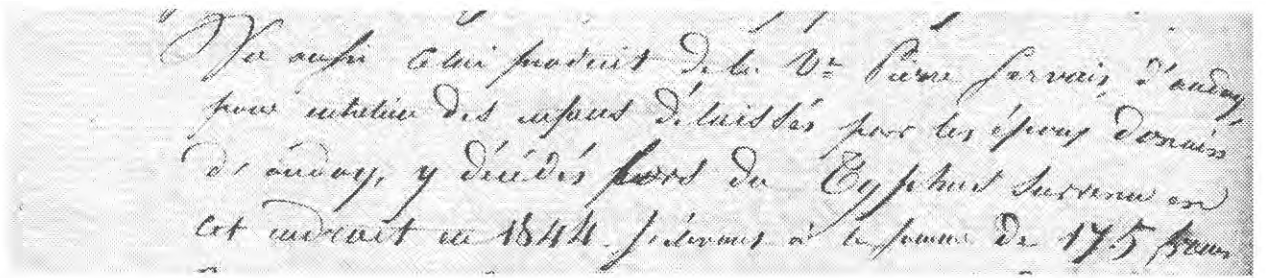 Vu aussi celui produit de la Ve Pierre Servais, d'auday,
pour entretien des enfans délaissés par les époux
d'auday, y décédés lors du Typhus survenu en
cet endroit en 1844. s'élevant à la somme de 175 francs